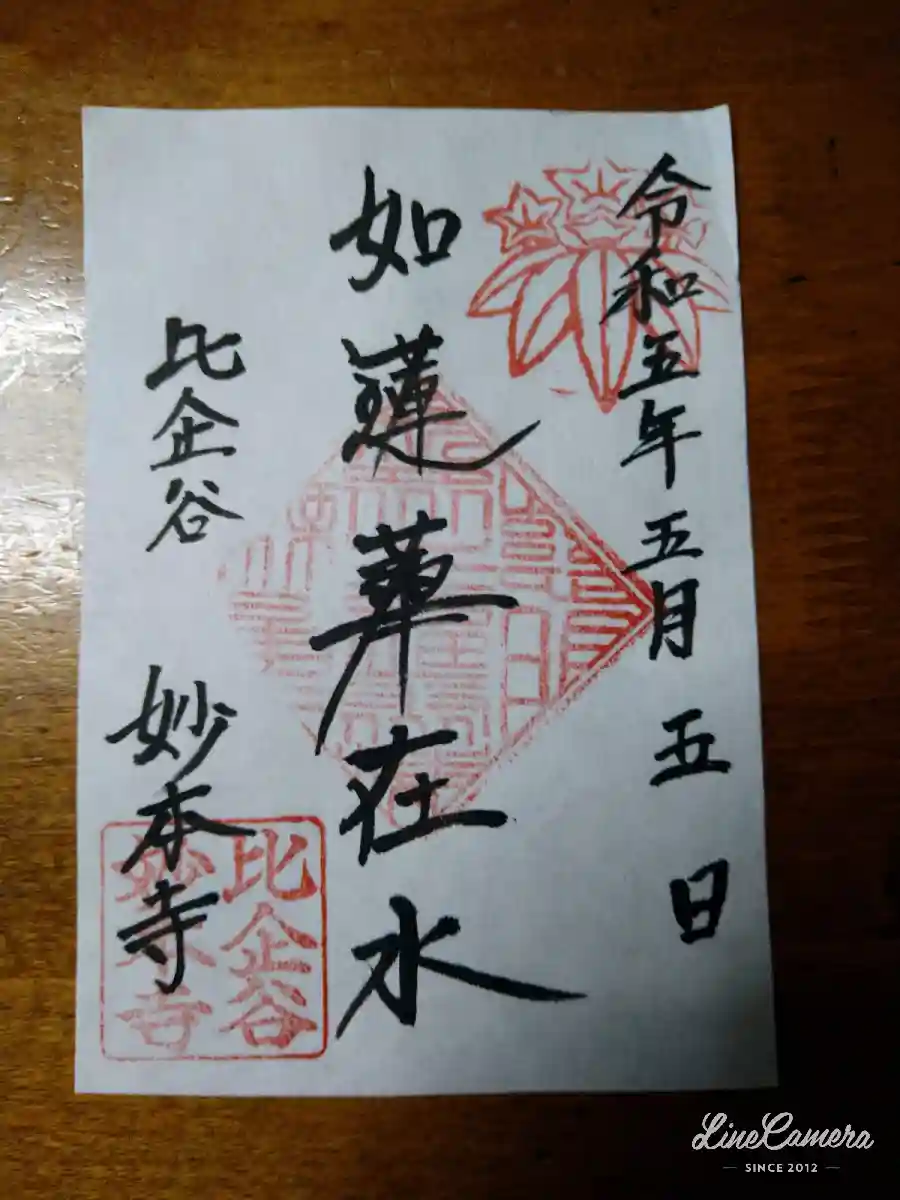 令和五年五月五日
如蓮華在水
比企谷 妙本寺
比企谷
妙本寺
LineCamera
SINCE 2012